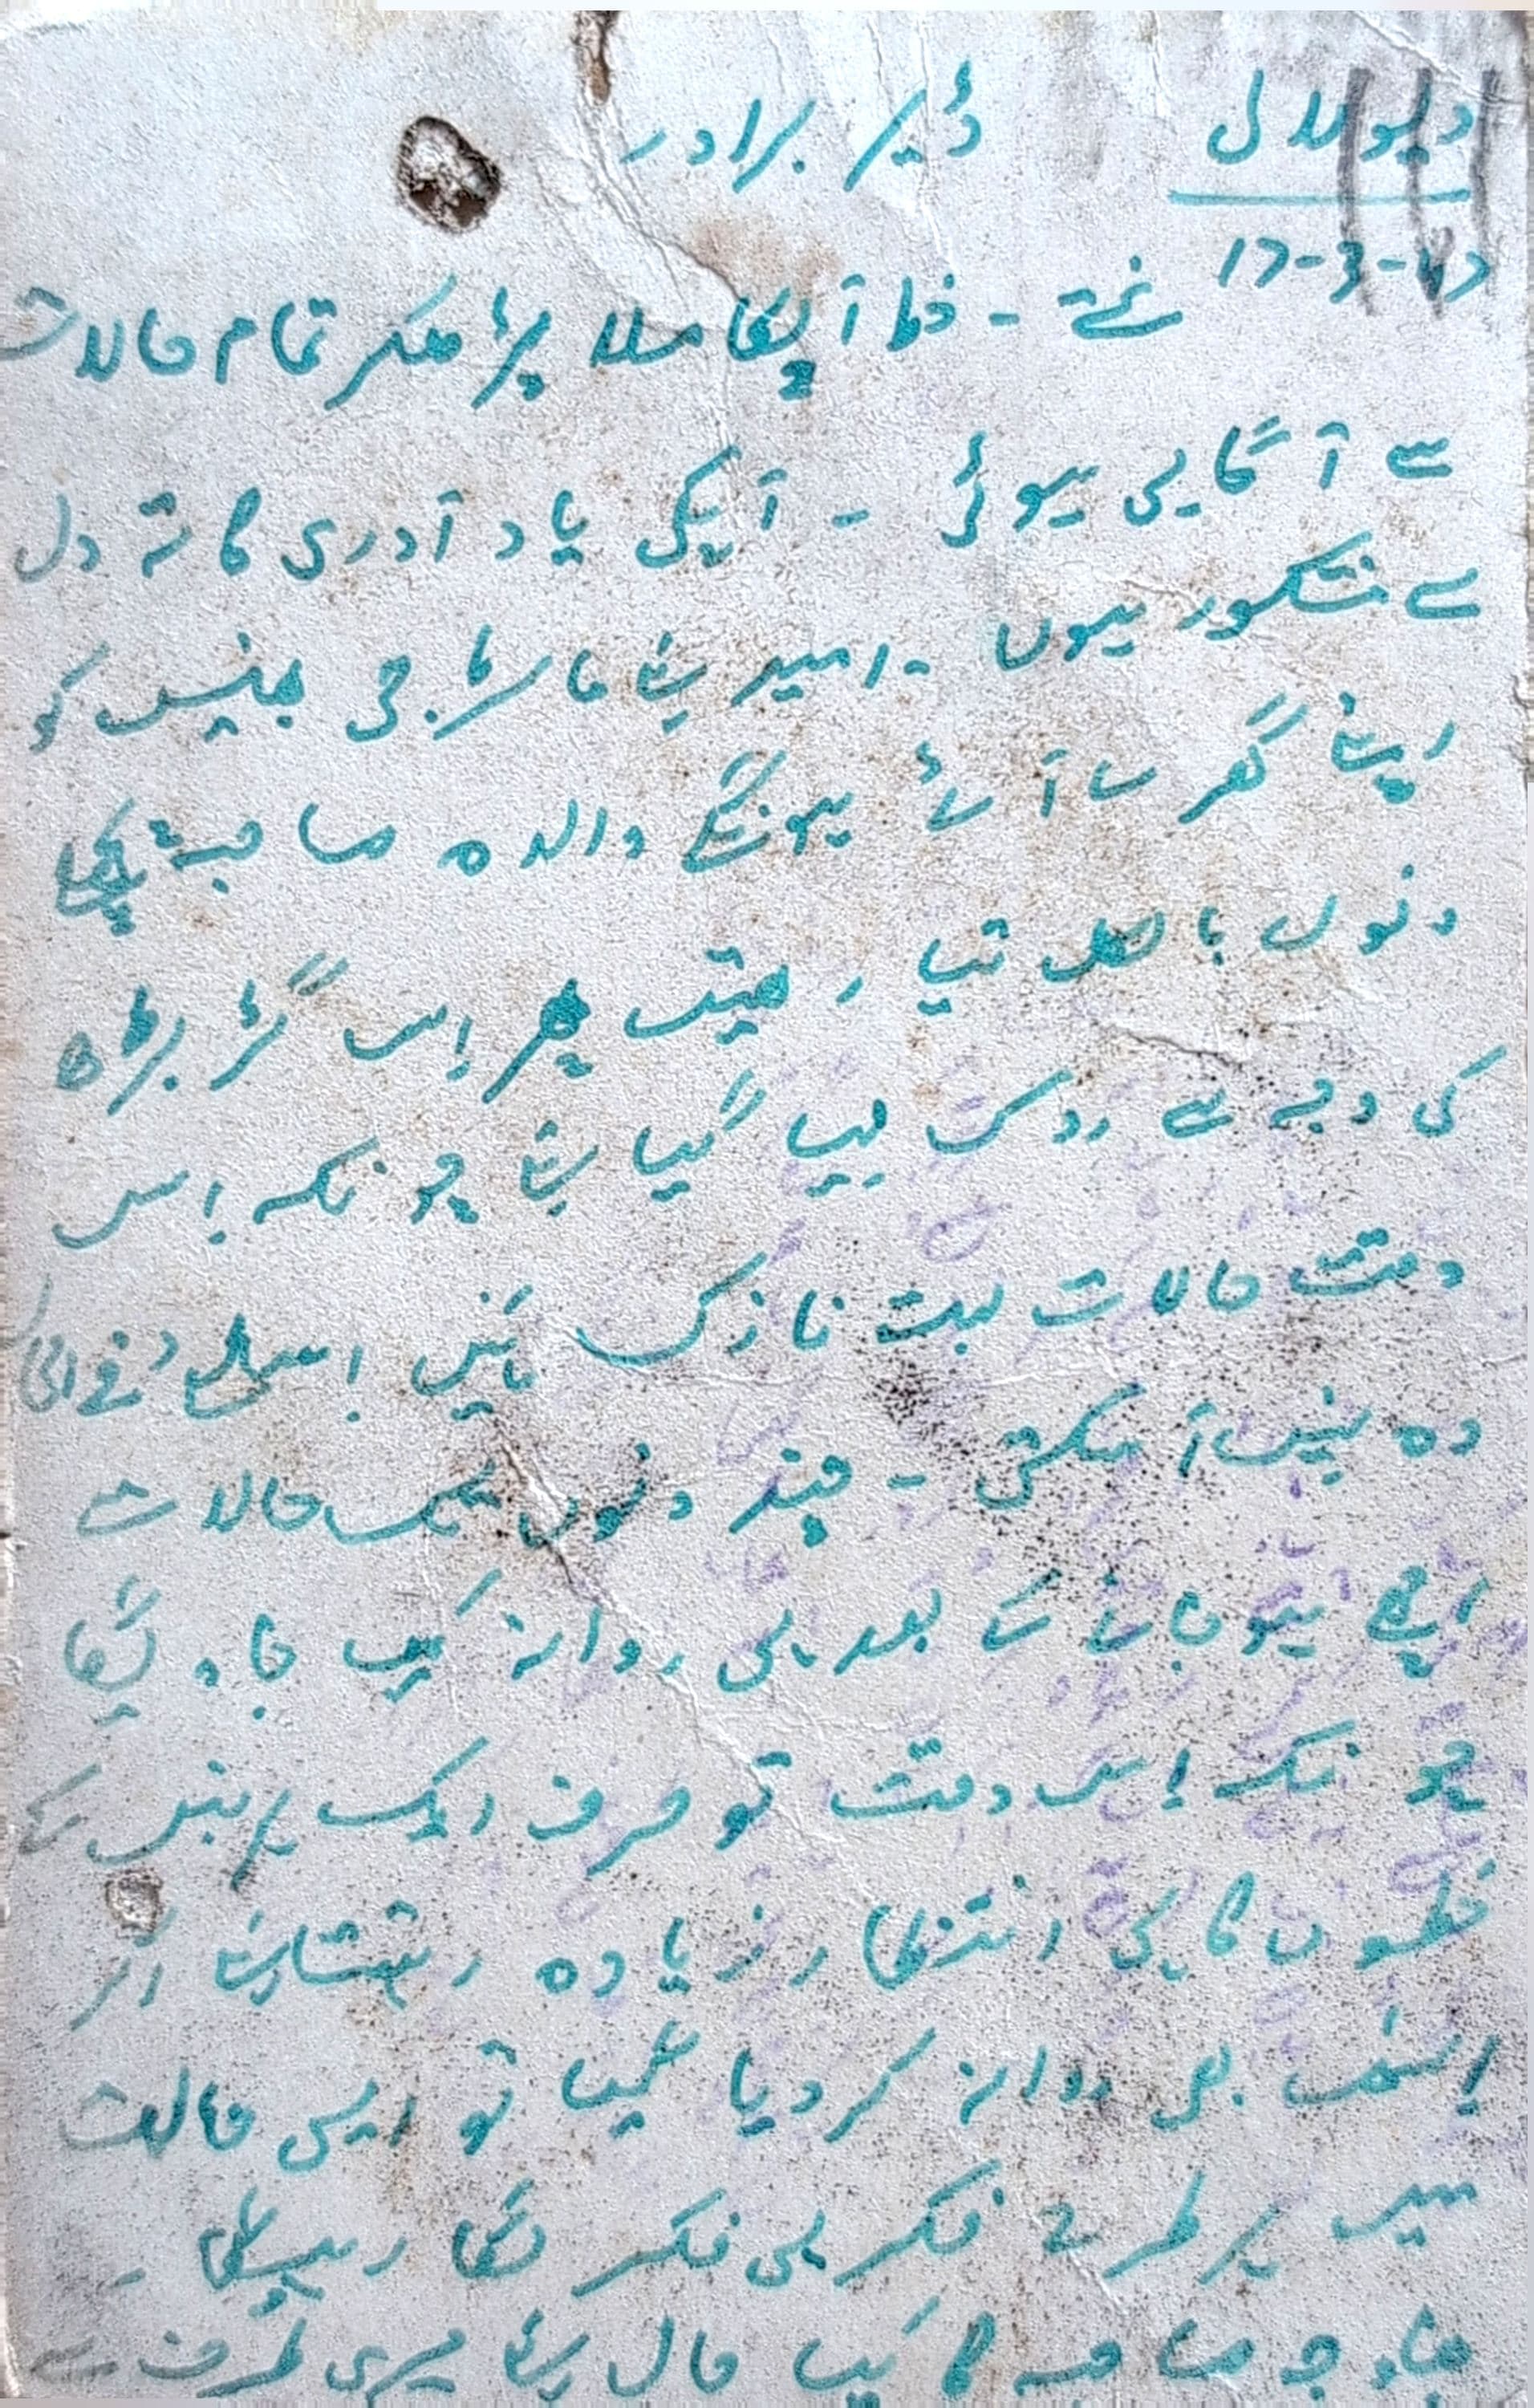 دیولالی ڈیر برادر
17-3-47
نمستے - خط آپکا ملا پڑھکر تمام حالات
سے آگاہی ہوئی - آپکی یاد آوری کا تہ دل
سے مشکور ہوں - امید ہے ماسٹر جی بھینس کو
اپنے گھر لے آئے ہونگے والدہ صاحبہ
دنوں بالکل تیار تھیں پھر اس گڑبڑ
کی وجہ سے روک لیا گیا ہے چونکہ اس
وقت حالات بہت نازک ہیں اسلئے
وہ نہیں آ سکتی - چند دنوں تک حالات
اچھے ہو جانے کے بعد ہی روانہ کیا جاویگا
چونکہ اس وقت تو صرف ایک بہن کے
خطوں کا ہی انتظار زیادہ رہتا ہے اگر
انہیں بھی روانہ کر دیا گیا تو ایسی حالت
میں ہر طرح فکر ہی فکر لگا رہیگا -
صاحبہ کا کیا حال ہے میری طرف سے